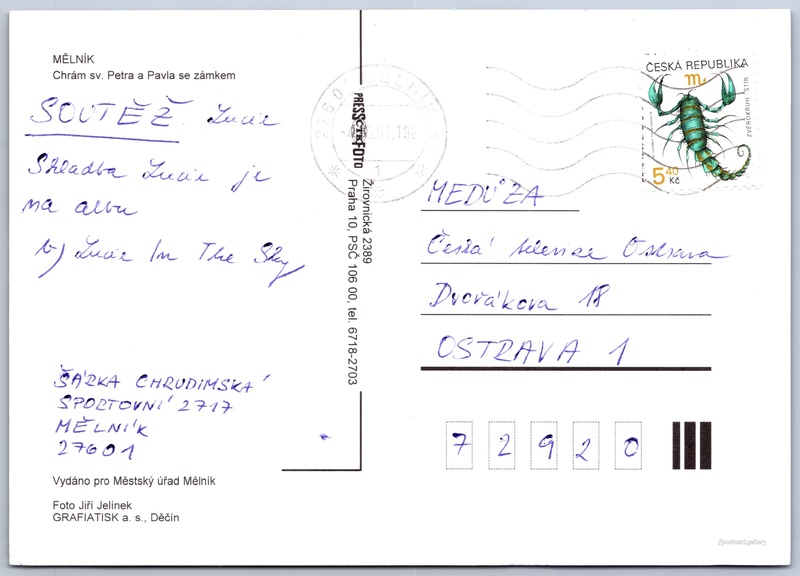 MĚLNÍK
Chrám sv. Petra a Pavla se zámkem
SOUTĚŽ Lucie
Skladba Lucie je
na albu
b) Lucie In The Sky
ŠÁRKA CHRUDIMSKÁ
SPORTOVNÍ 2717
MĚLNÍK
27601
Vydáno pro Městský úřad Mělník
Foto Jiří Jelínek
GRAFIATISK a. s., Děčín
PRESSFOTO
Žirovnická 2389
Praha 10, PSČ 106 00, tel. 6718-2703
276 01 MĚLNÍK
1
ČESKÁ REPUBLIKA
ZVĚROKRUH - ŠTÍR
5,40
Kč
MEDŮZA
Česká televize Ostrava
Dvořákova 18
OSTRAVA 1
72920